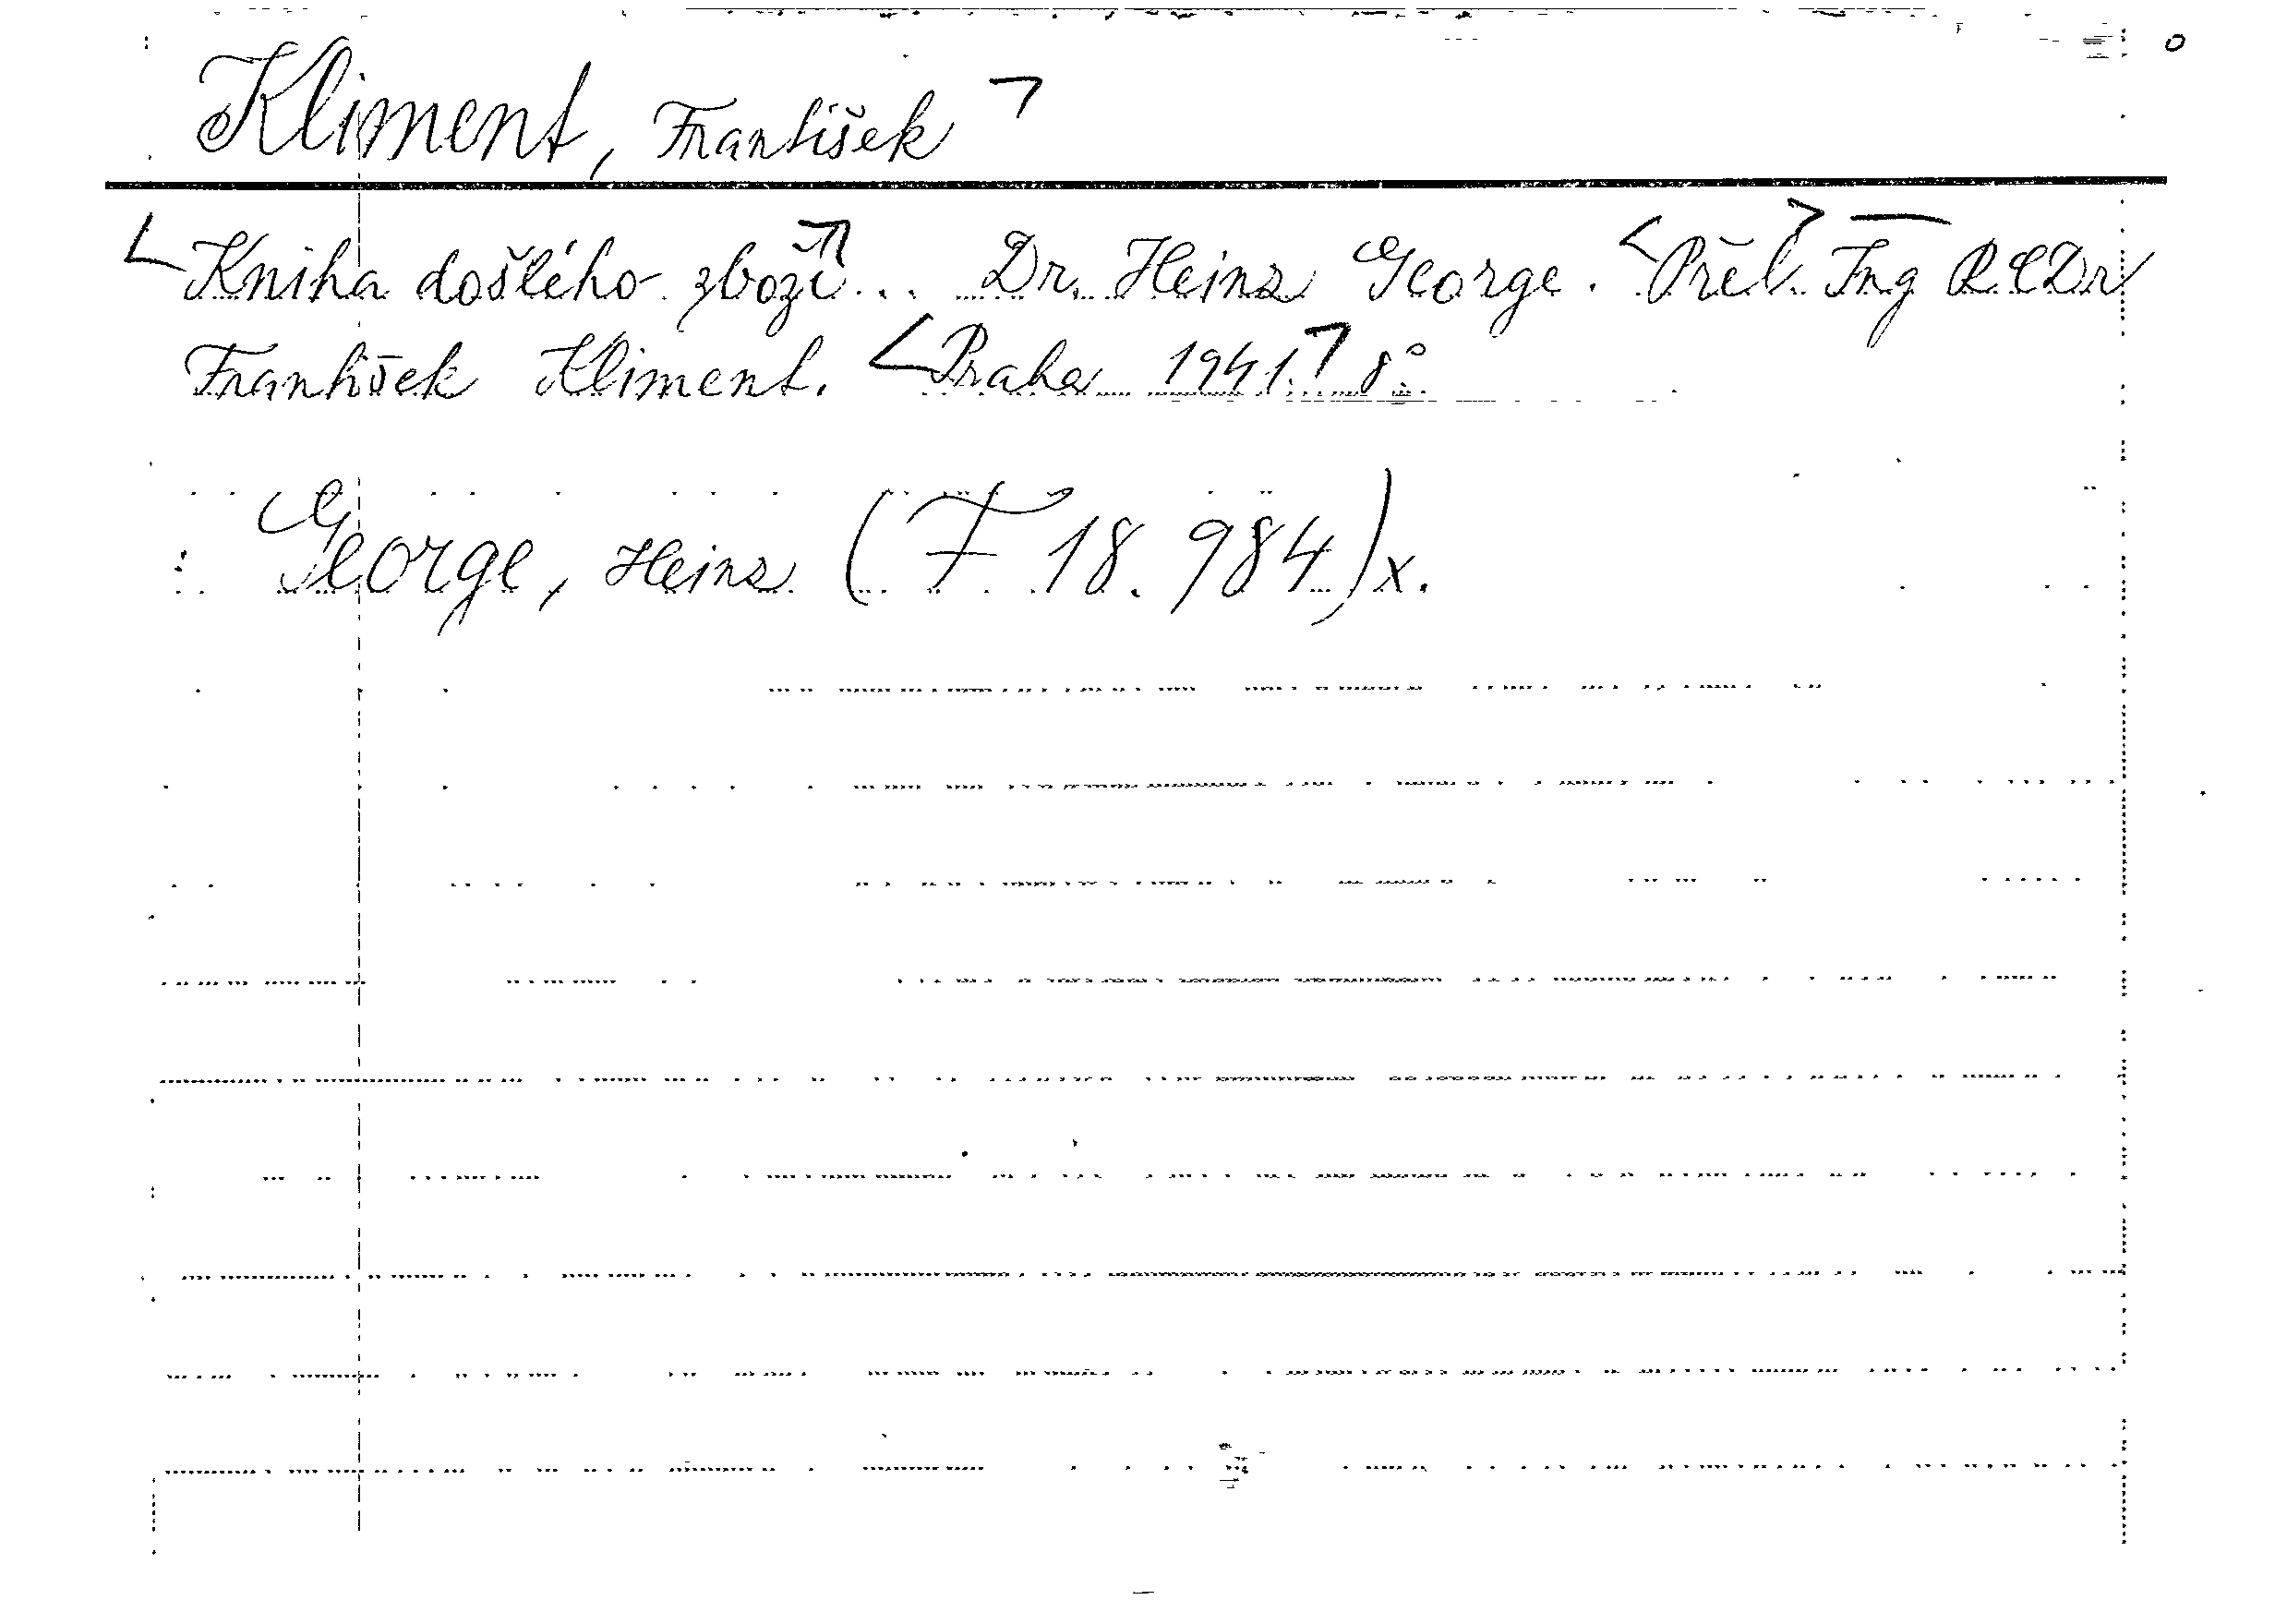 Kliment, František
Kniha došlého zboží... Dr. Heinz George. Přel. Ing RCDr
František Kliment. Praha 1941. 8°
George, Heinz (F 18.984)x.